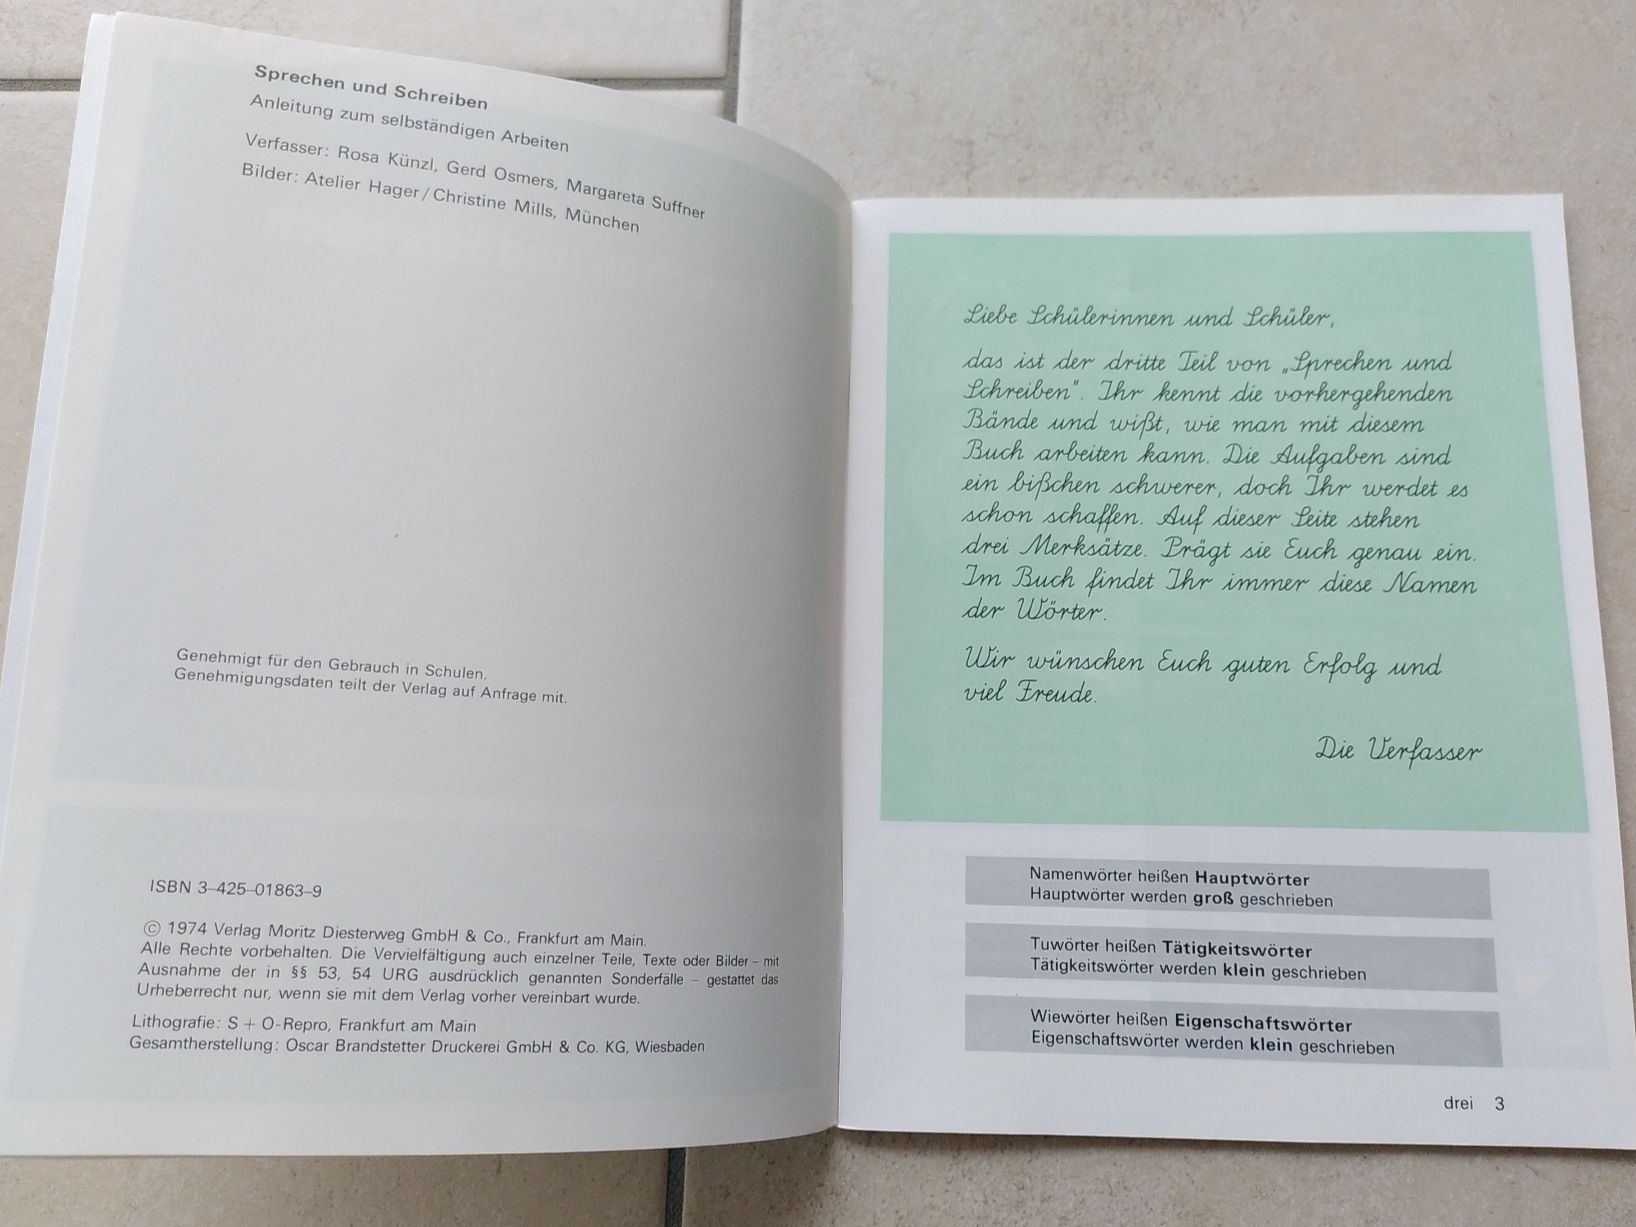 Sprechen und Schreiben
Anleitung zum selbständigen Arbeiten
Verfasser: Rosa Künzl, Gerd Osmers, Margareta Suffner
Bilder: Atelier Hager/Christine Mills, München
Genehmigt für den Gebrauch in Schulen.
Genehmigungsdaten teilt der Verlag auf Anfrage mit.
ISBN 3–425–01863–9
© 1974 Verlag Moritz Diesterweg GmbH & Co., Frankfurt am Main.
Alle Rechte vorbehalten. Die Vervielfältigung auch einzelner Teile, Texte oder Bilder – mit
Ausnahme der in §§ 53, 54 URG ausdrücklich genannten Sonderfälle – gestattet das
Urheberrecht nur, wenn sie mit dem Verlag vorher vereinbart wurde.
Lithografie: S + O-Repro, Frankfurt am Main
Gesamtherstellung: Oscar Brandstetter Druckerei GmbH & Co. KG, Wiesbaden
Liebe Schülerinnen und Schüler,
das ist der dritte Teil von „Sprechen und
Schreiben". Ihr kennt die vorhergehenden
Bände und wißt, wie man mit diesem
Buch arbeiten kann. Die Aufgaben sind
ein bißchen schwerer, doch Ihr werdet es
schon schaffen. Auf dieser Seite stehen
drei Merksätze. Prägt sie Euch genau ein.
Im Buch findet Ihr immer diese Namen
der Wörter.
Wir wünschen Euch guten Erfolg und
viel Freude.
Die Verfasser
Namenwörter heißen Hauptwörter
Hauptwörter werden groß geschrieben
Tuwörter heißen Tätigkeitswörter
Tätigkeitswörter werden klein geschrieben
Wiewörter heißen Eigenschaftswörter
Eigenschaftswörter werden klein geschrieben
drei 3